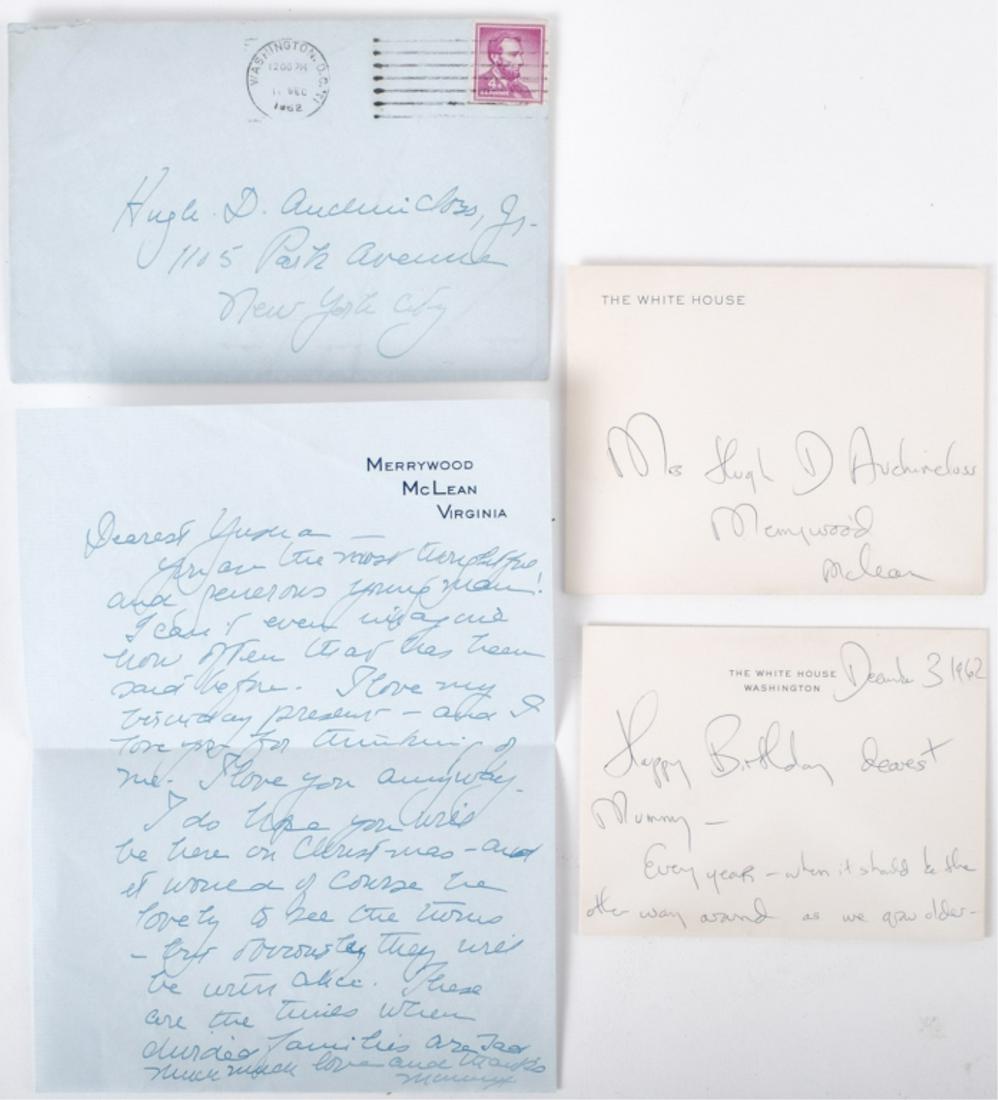 WASHINGTON, D.C.
1200 PM
DEC
1962
4¢
Hugh. D. Auchincloss, Jr.
1105 Park Avenue
New York City
THE WHITE HOUSE
Mrs Hugh D Auchincloss
Merrywood
McLean
MERRYWOOD
MCLEAN
VIRGINIA
Dearest Yusha —
You are the most thoughtful
and generous young man!
I can't even imagine
how often that has been
said before. I love my
birthday present - and I
love you for thinking of
me. I love you anyway.
I do hope you will
be here on Christmas - and
it would of course be
lovely to see the twins
- but obviously they will
be with Alice. These
are the times when
divided families are sad
much much love and thanks
Mummy
THE WHITE HOUSE
WASHINGTON
December 3 1962
Happy Birthday dearest
Mummy —
Every year - when it should be the
other way around as we grow older -